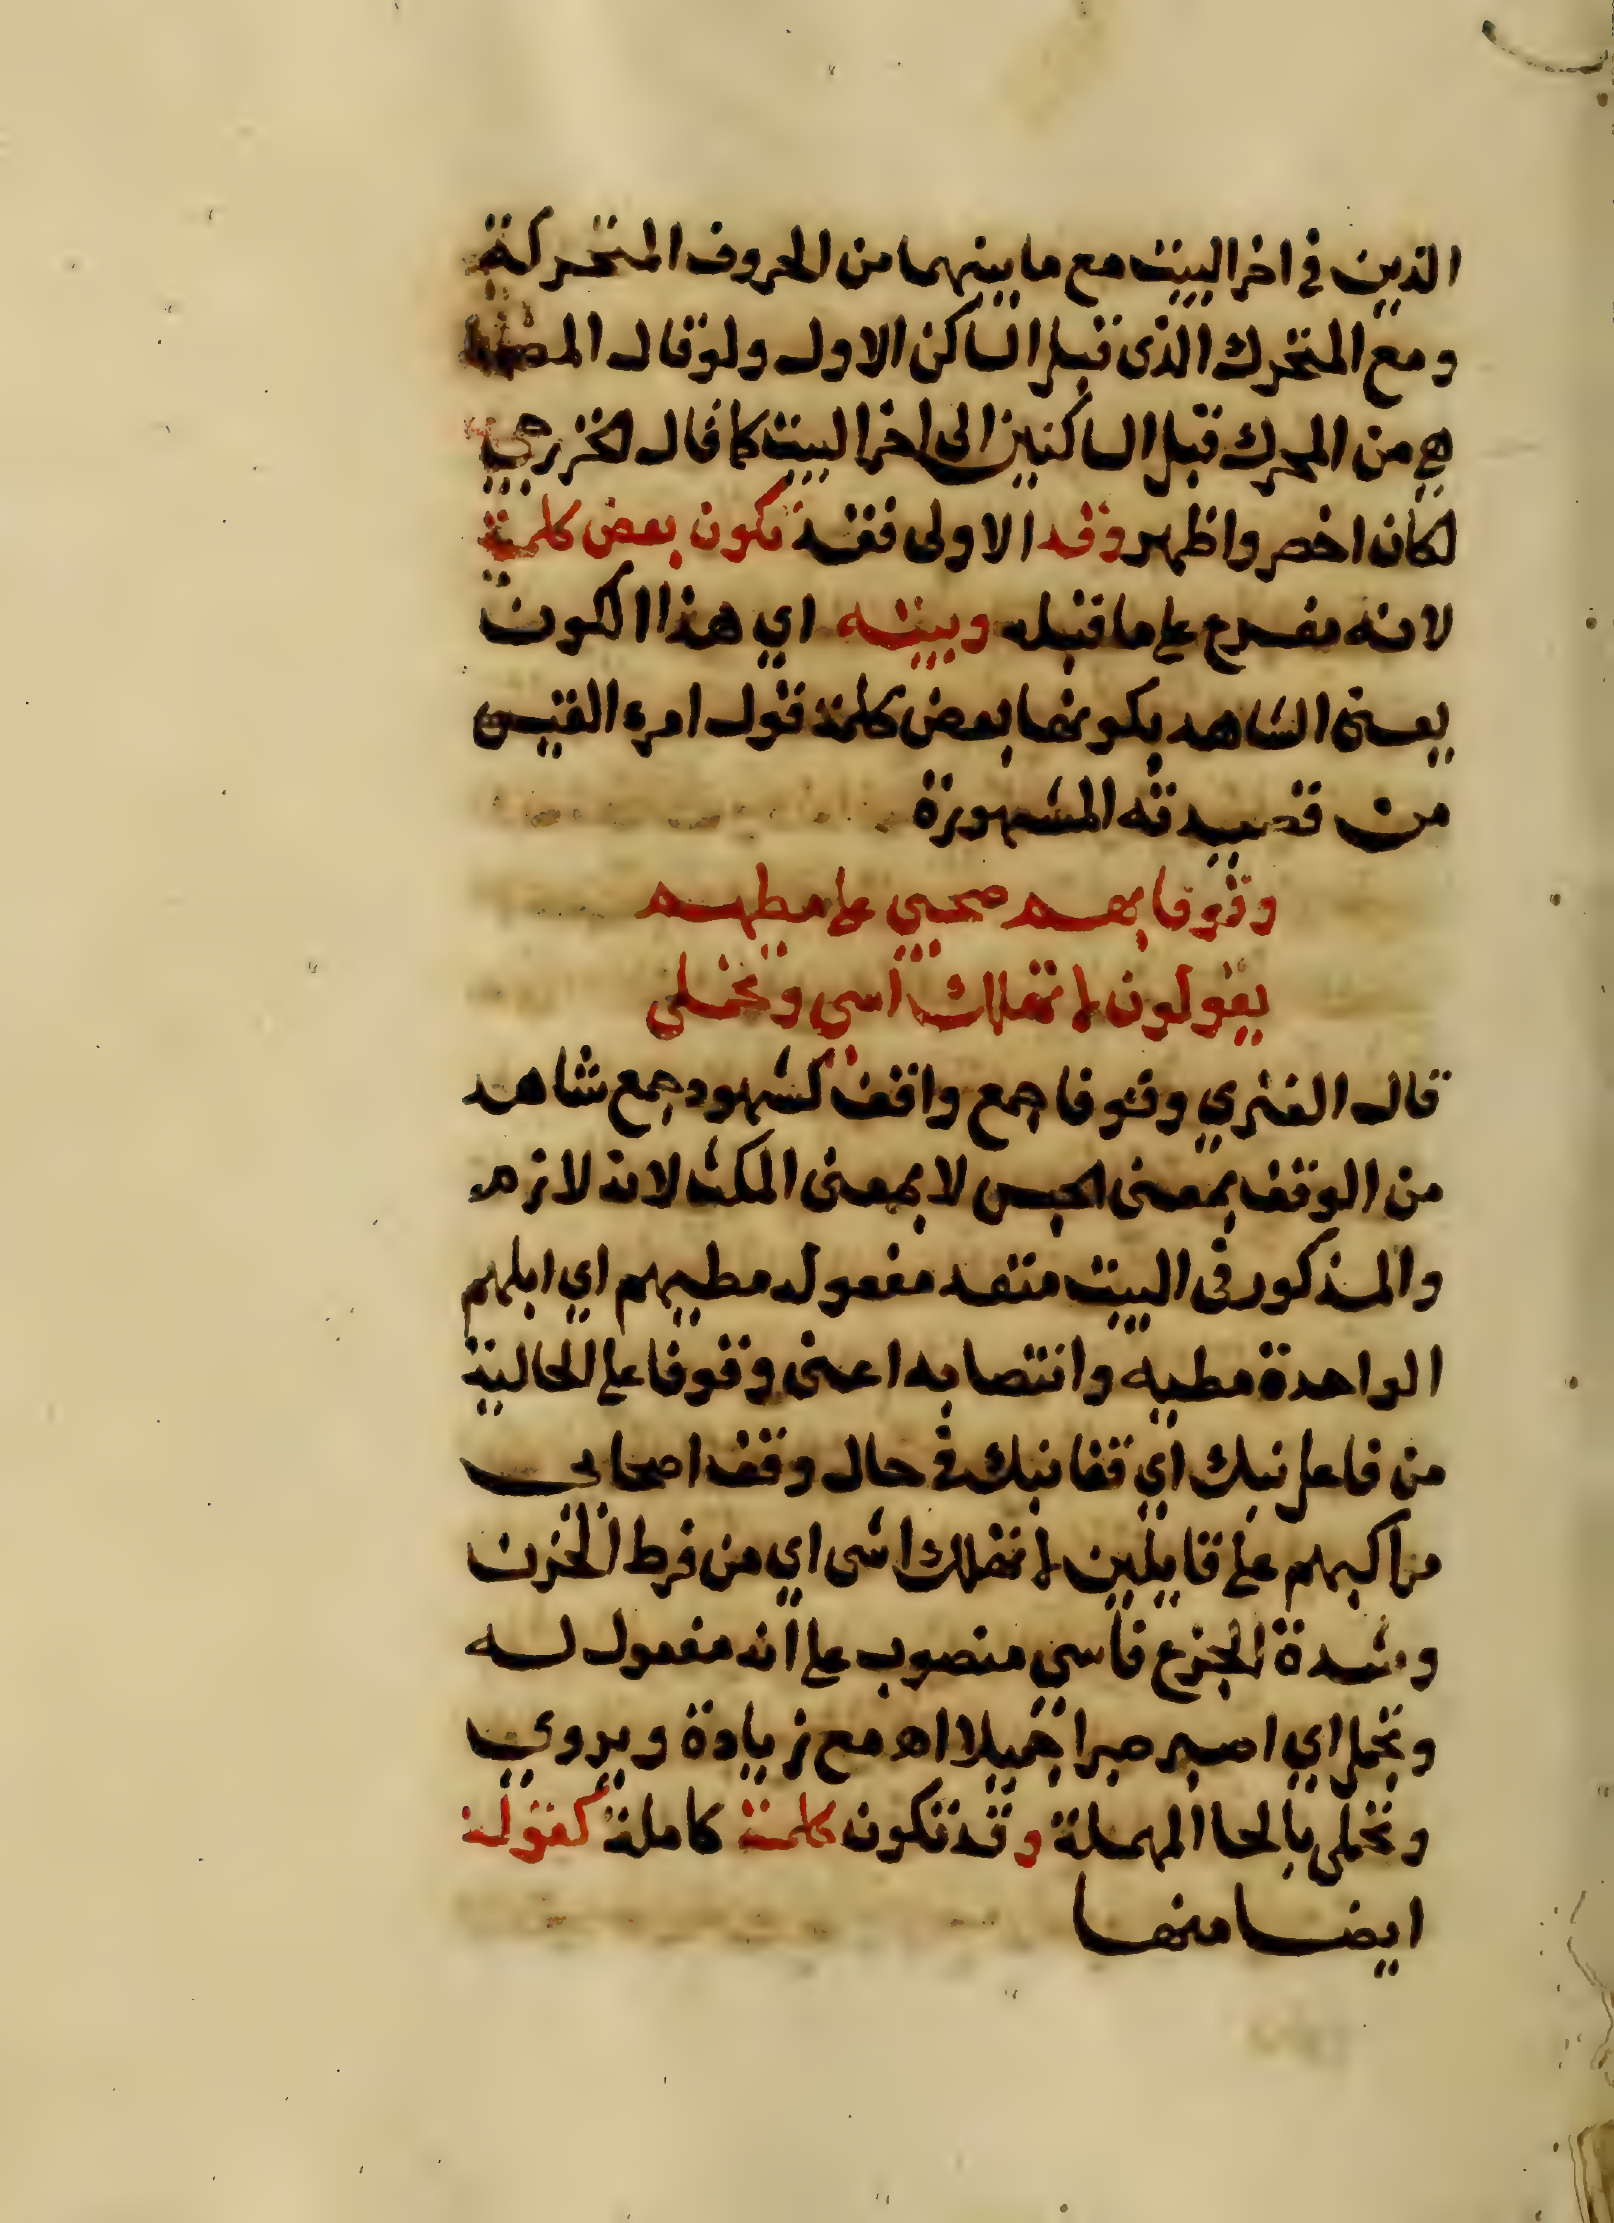 الذين في اخر البيت مع ما بينهما من الحروف المتحركة
ومع المتحرك الذى قبل الساكن الاول ولو قال المص
هي من المحرك قبل الساكنين الى اخر البيت كما قال الخزرجي
لكان اخصر واظهر وقد الاولى فقد تكون بعض كلمة
لانه مفرع على ما قبله وبيته اي هذا الكون
يعنى الشاهد بكونها بعض كلمة قول امرء القيس
من قصيدته المشهورة
وقوفا بها صحبي على مطيهم
يقولون لا تهلك اسى وتحملى
قال الغنزي وقوفا جمع واقف كشهود جمع شاهد
من الوقف بمعنى الحبس لا بمعنى المكث لانه لازم
والمذكور فى البيت متعد مفعوله مطيهم اي ابلهم
الواحدة مطيه وانتصابه اعنى وقوفا على الحالية
من فاعل نبك اي قفا نبك في حال وقف اصحابي
مراكبهم على قايلين لا تهلك اسى اي من فرط الحزن
وشدة الجزع فاسى منصوب على انه مفعول له
وتجمل اي اصبر صبرا جميلا اه مع زيادة ويروي
وتحملى بالحا المهملة وقد تكون كلمة كاملة كقوله
ايضا منها